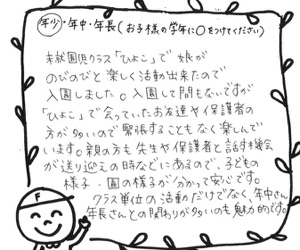 年少・年中・年長(お子様の学年に○をつけてください)
未就園児クラス「ひよこ」で娘が
のびのびと楽しく活動出来たので
入園しました。入園して間もないですが
「ひよこ」で会っていたお友達や保護者の
方が多いので緊張することもなく楽しんで
います。親の方も先生や保護者と話す機会
が送り迎えの時などにあるので、子どもの
様子・園の様子が分かって安心です。
クラス単位の活動だけでなく、年中さん
年長さんとの関わりが多いのも魅力的です。
F